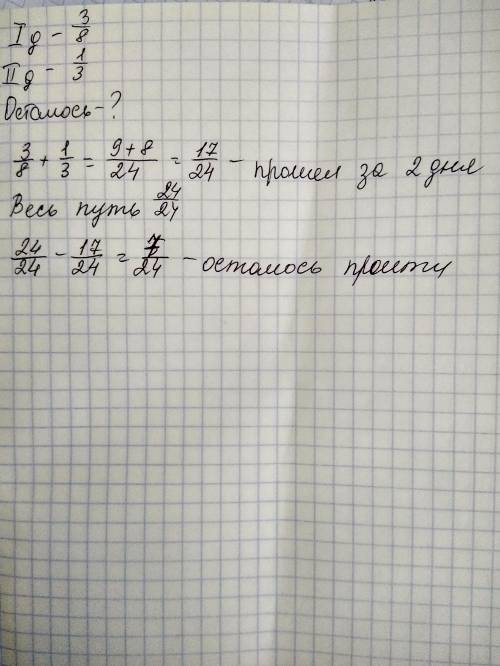 I д - 3/8
II д - 1/3
Осталось - ?
3/8 + 1/3 = 9+8/24 = 17/24 - прошел за 2 дня
Весь путь 24/24
24/24 - 17/24 = 7/24 - осталось пройти